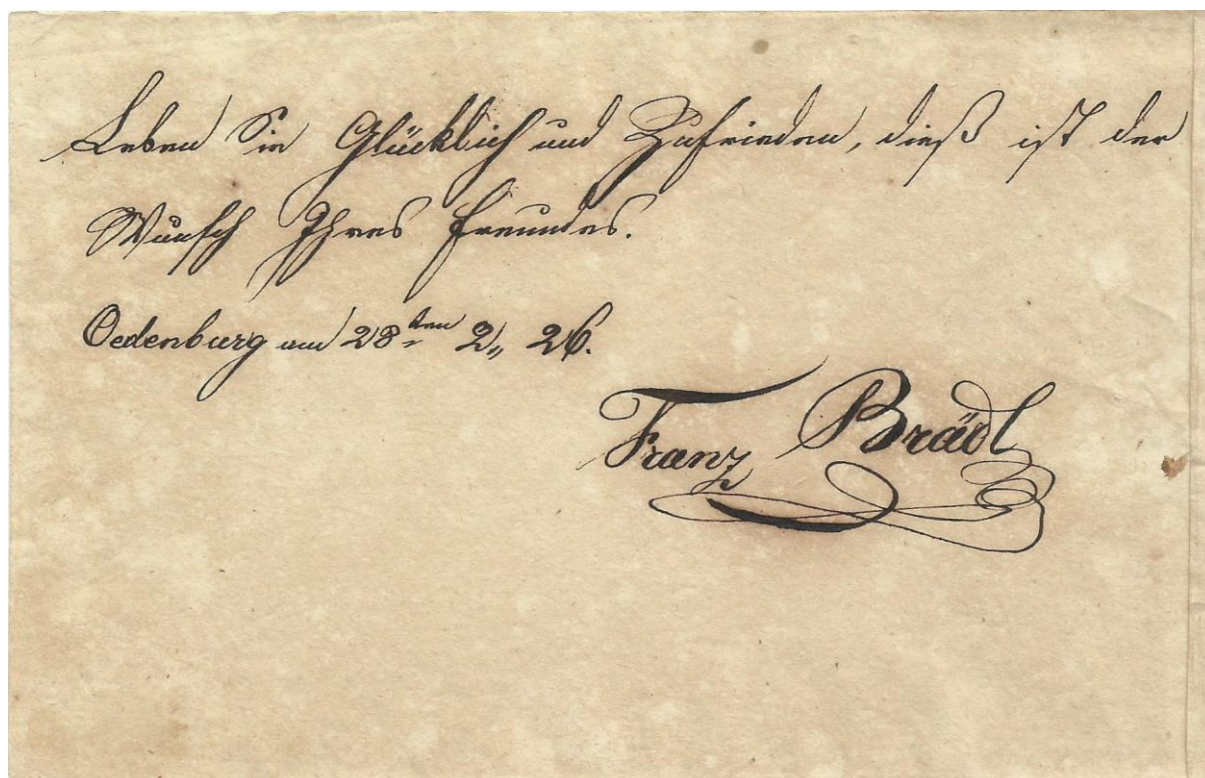 Leben Sie Glücklich und Zufrieden, dieß ist der
Wunsch Ihres Freundes.
Oedenburg am 28ten 2„ 26.
Franz Brädl